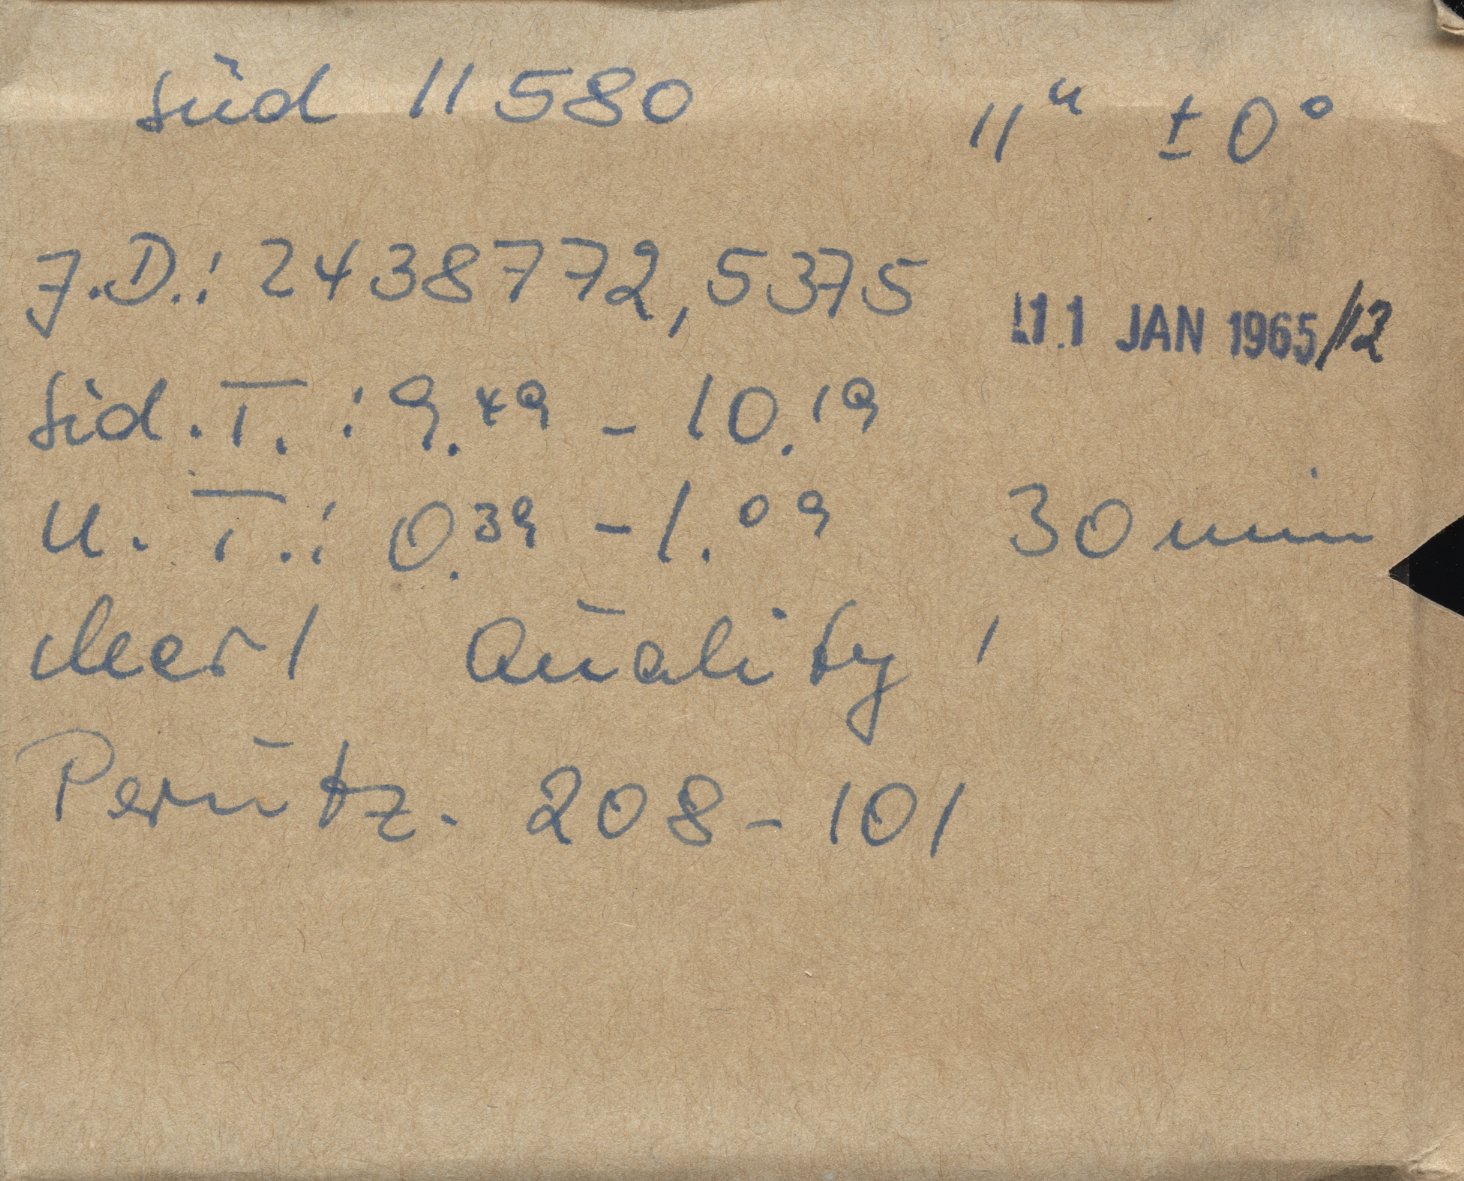 Süd 11580 11ʰ ± 0°
J.D.: 2438772,5375
11 JAN 1965/12
Sid. T. : 9.⁴⁹ - 10.¹⁹
U. T. : 0.³⁹ - 1.⁰⁹ 30 min
clear! Quality 1
Perutz. 208-101